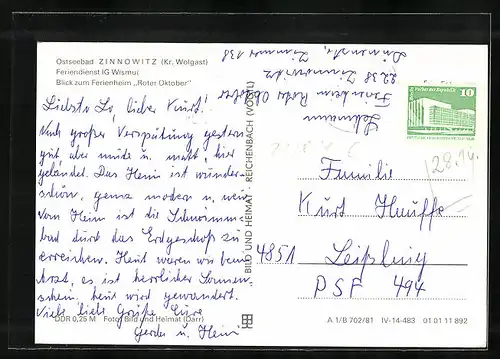 Ostseebad ZINNOWITZ (Kr. Wolgast)
Feriendienst IG Wismut
Blick zum Ferienheim „Roter Oktober"
Liebste Lo, lieber Kurt!
Nach großer Verspätung gestern
gut, aber müde u. matt, hier
gelandet. Das Heim ist wunder
schön, ganz modern u. neu
Vom Heim ist die Schwimm
bad durch das Erdgeschoß zu
erreichen. Heut waren wir beim
Arzt, es ist herrlicher Sonnen
schein, heut wird gewandert.
Viele liebe Grüße Eure
Gerda u. Heini
DDR 0,25 M Foto: Bild und Heimat (Darr)
BILD UND HEIMAT · REICHENBACH (VOGTL)
Lehmann
Ferienheim Roter Oktober
2238 Zinnowitz
Zimmer 138
Palast der Republik
10
DDR
28.10.
Familie
Kurt Hauffe
4851 Leißling
PSF 494
A 1/B 702/81 IV-14-483 01 01 11 892